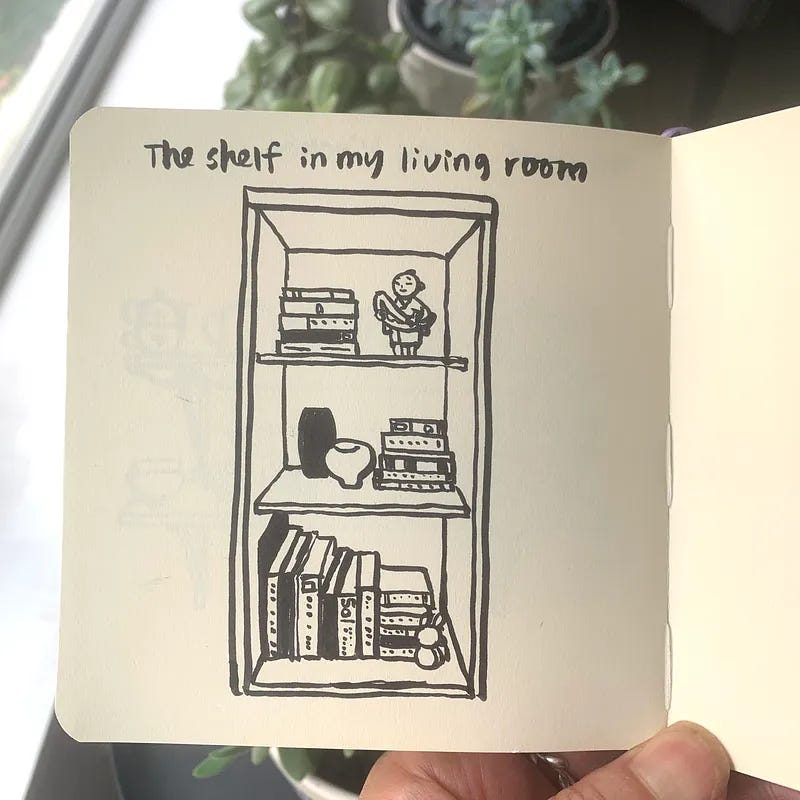 The shelf in my living room
Sol